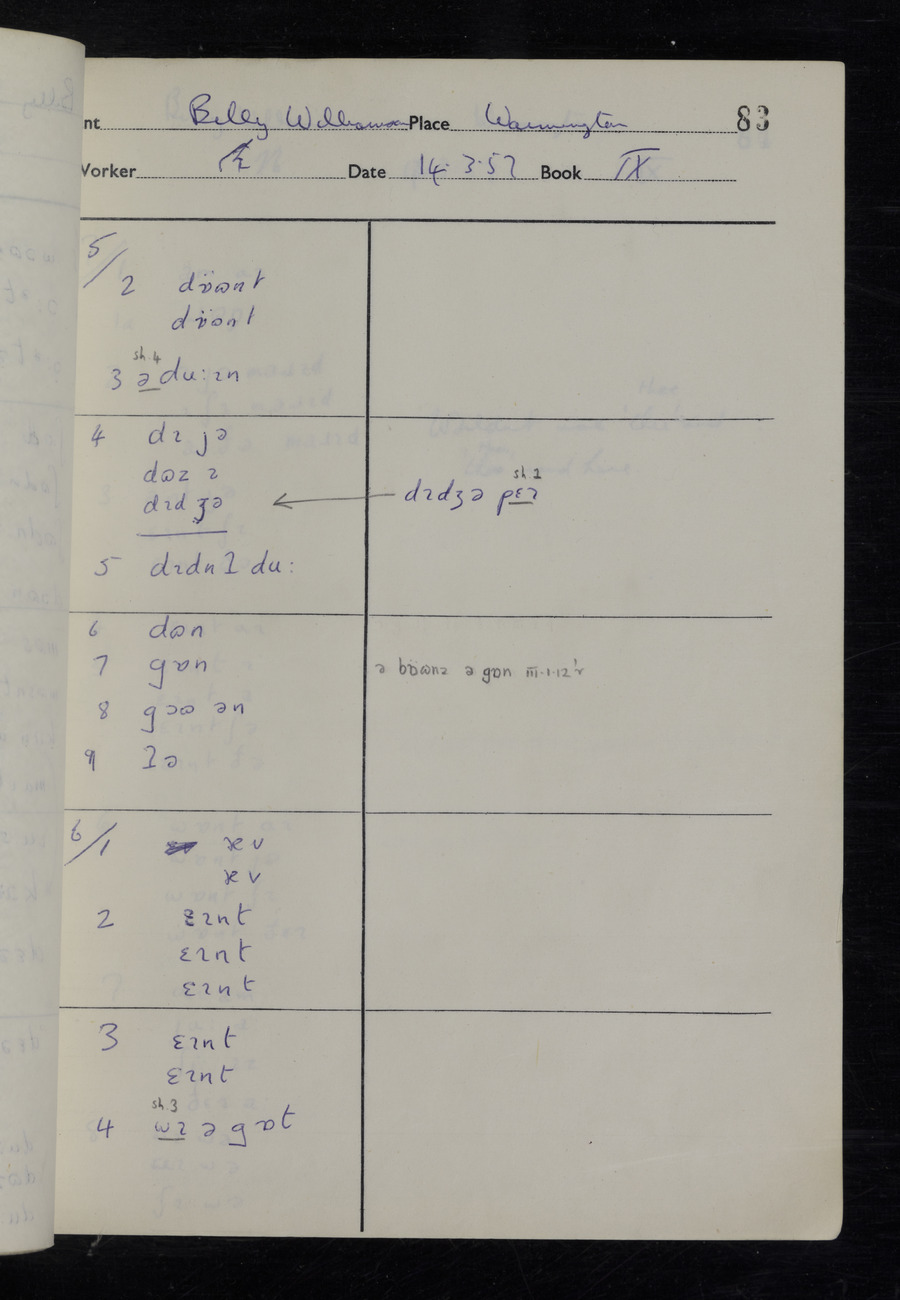 nt Billy Williamson Place Warmington 83
Worker Date 14.3.57 Book IX
5/
2 dɵ̈ɷnt
dɵ̈ənt
sh.4
3 ədu:ɪn
4 dɪ jə
dɷz ɪ
dɪdʒə ← dɪdʒə pɛɪ
sh 2
5 dɪdn̩ʔ du:
6 dɷn
7 gɒn ə bɵ̈ɷnz ə gɒn III.1.12'r
8 gɔɷ ən
9 ʔə
6/1 æv
æv
2 ɛɪnt
ɛɪnt
ɛɪnt
3 ɛɪnt
ɛɪnt
sh.3
4 wɪ ə gɒt